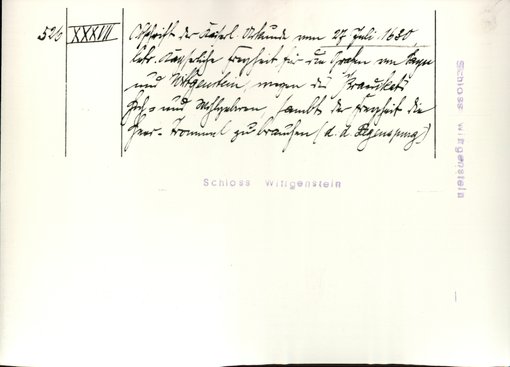 526 XXXVII Abschrift der Kaiserl. Urkunde vom 27 Juli 1680,
betr. Kayserliche Freyheit für die Grafen von Sayn
und Wittgenstein, wegen des Prädikats
Hoch- und Wohlgeboren sambt der Freyheit die
Heer-Trommel zu brauchen (d. d. Regenspurg)
Schloss Wittgenstein
Schloss Wittgenstein